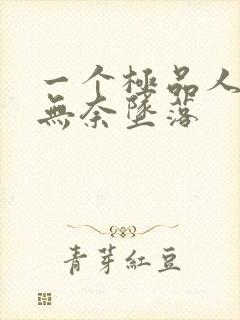 一个極品人
無奈墜落
青芽紅豆